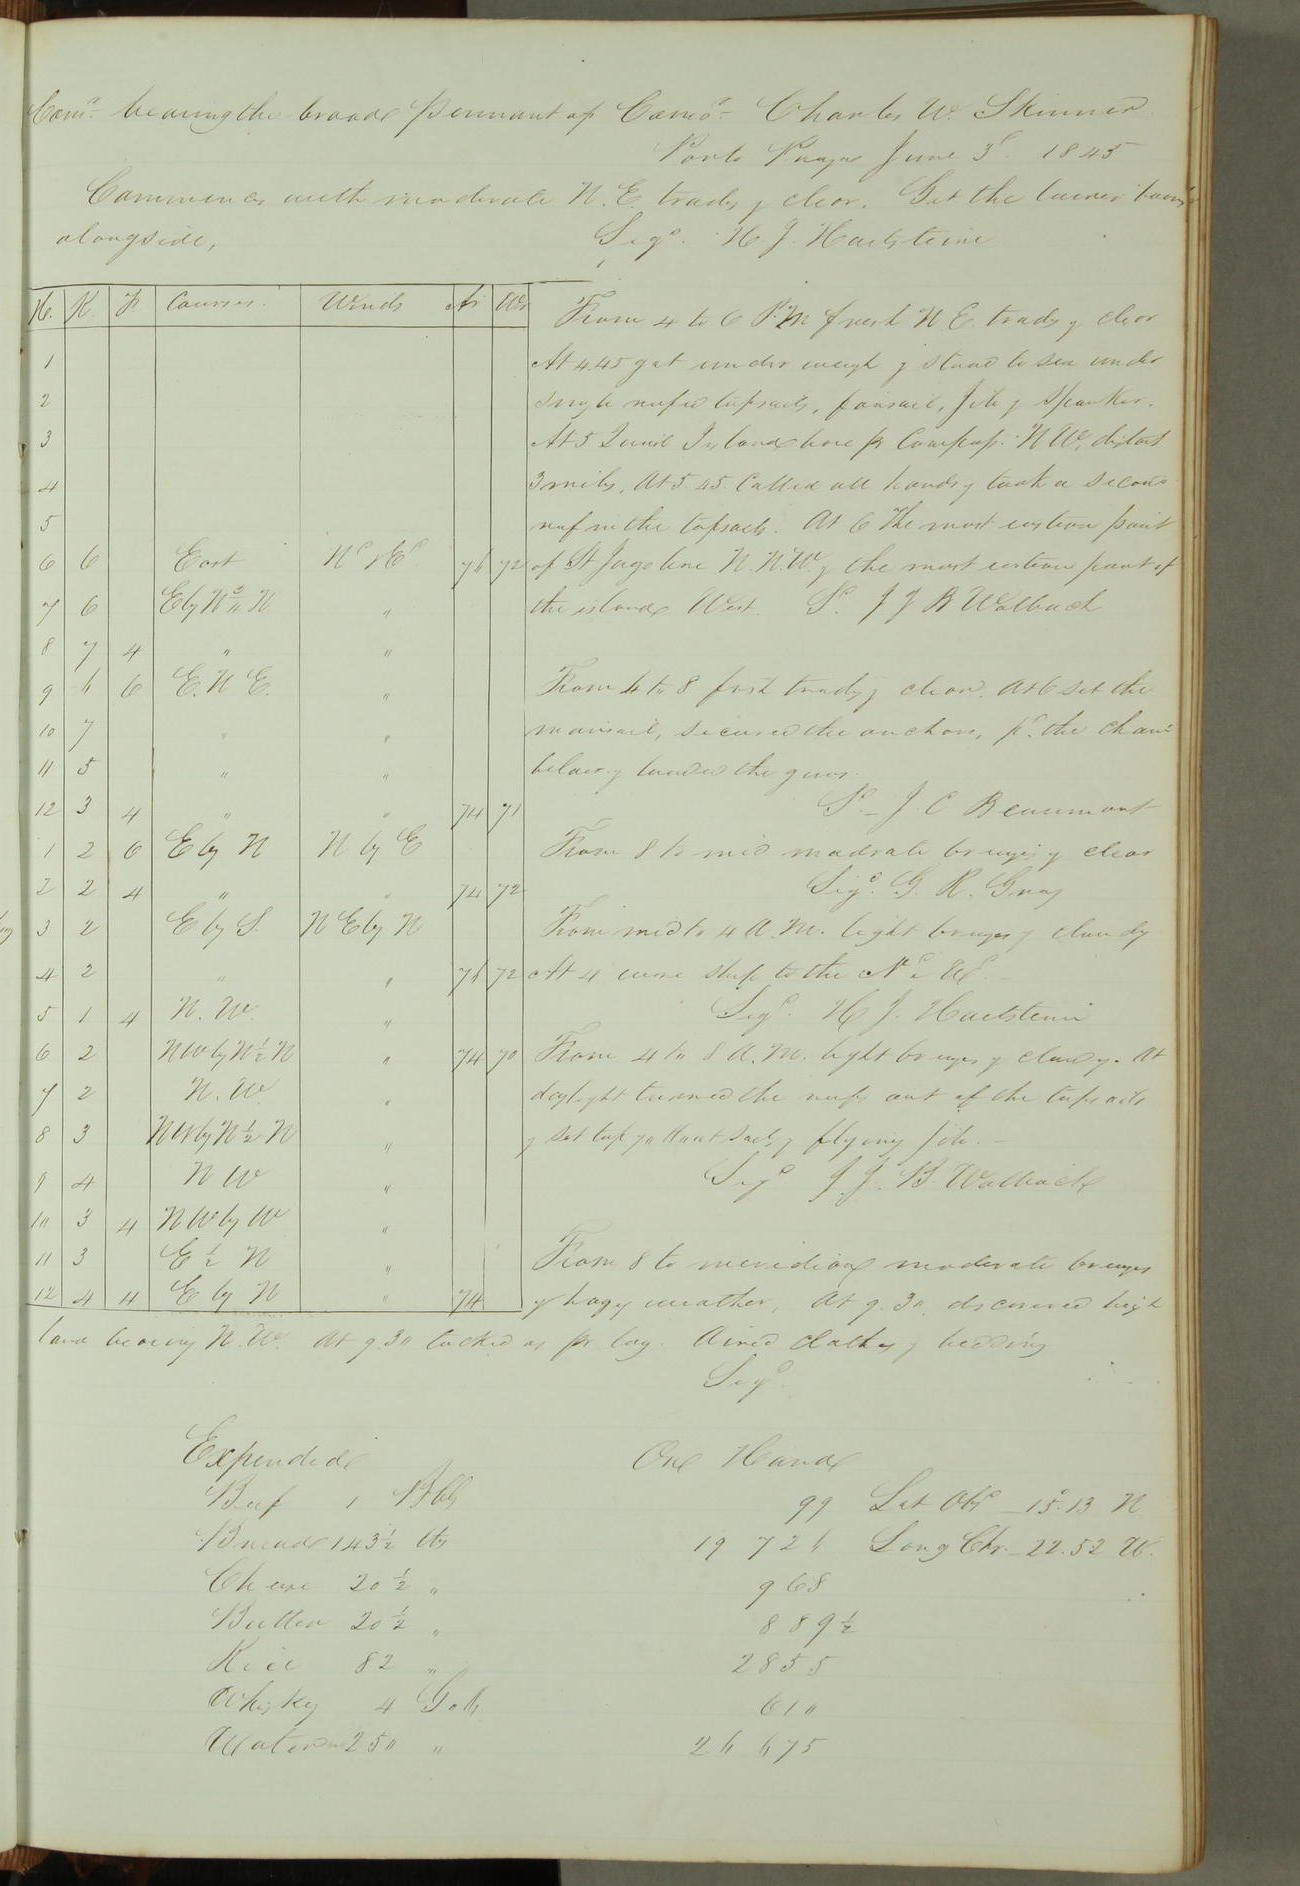 Com'r bearing the broad Pennant of Como. Charles W. Skinner
Porto Praya June 3d. 1845
Commences with moderate N.E. trades & clear. Got the
alongside,
Sigd. H J Hartstene
H. K. F Courses. Winds Ar Wr
1
2
3
4
5
6 6 East Nd & Ed 76 72
7 6 E by N 3/4 N "
8 7 4 " "
9 6 6 E. N E. "
10 7 " "
11 5 " "
12 3 4 " " 74 71
1 2 6 E by N N by E
2 2 4 " " 74 72
3 2 E by S. N E by N
4 2 " " 76 72
5 1 4 N. W. "
6 2 NW by N 1/2 N " 74 70
7 2 N. W. "
8 3 NW by N 1/2 N "
9 4 N W "
10 3 4 N W by W "
11 3 E 1/2 N "
12 4 4 E by N " 74
From 4 to 6 P.M fresh N E. trades & clear
At 4.45 got under weigh & stood to sea under
single reefed topsails, foresail, Jib & Spanker.
At 5 Quail Island bore pr Compass. N W, distant
3 miles, At 5.45. Called all hands & took a second
reef in the topsails. At 6 The most eastern point
of St Jago bore N. N.W. & the most western point of
the island West. Sd. J J B Walbach
From 6 to 8 fresh trades & clear. At 6 set the
mainsail, secured the anchors, pd. the chain
below & loaded the guns.
Sd- J. C Beaumont
From 8 to mid moderate breezes & clear
Sigd. G. R. Gray
From mid to 4 A.M. light breezes & cloudy
At 4 wore ship to the Nd & Wd.
Sigd. H J. Hartstene
From 4 to 8 A.M. light breezes & cloudy. At
daylight turned the reefs out of the topsails
& set top gallant sails & flying jib.
Sigd J. J. B Walbach
From 8 to meridian moderate breezes
& hazy weather, At 9.30. discovered high
land bearing N. W. At 9.30 tacked as pr log. Aired clothes & bedding
Sigd.
Expended On Hand
Beef 1 Bbls 99 Lat Obsd 15°.13 N
Bread 143 1/2 lbs 19 726 Long Chr. 22.52 W.
Cheese 20 1/2 " 968
Butter 20 1/2 " 889 1/2
Rice 82 " 2855
Whisky 4 Galls 610
Water 250 " 26 675